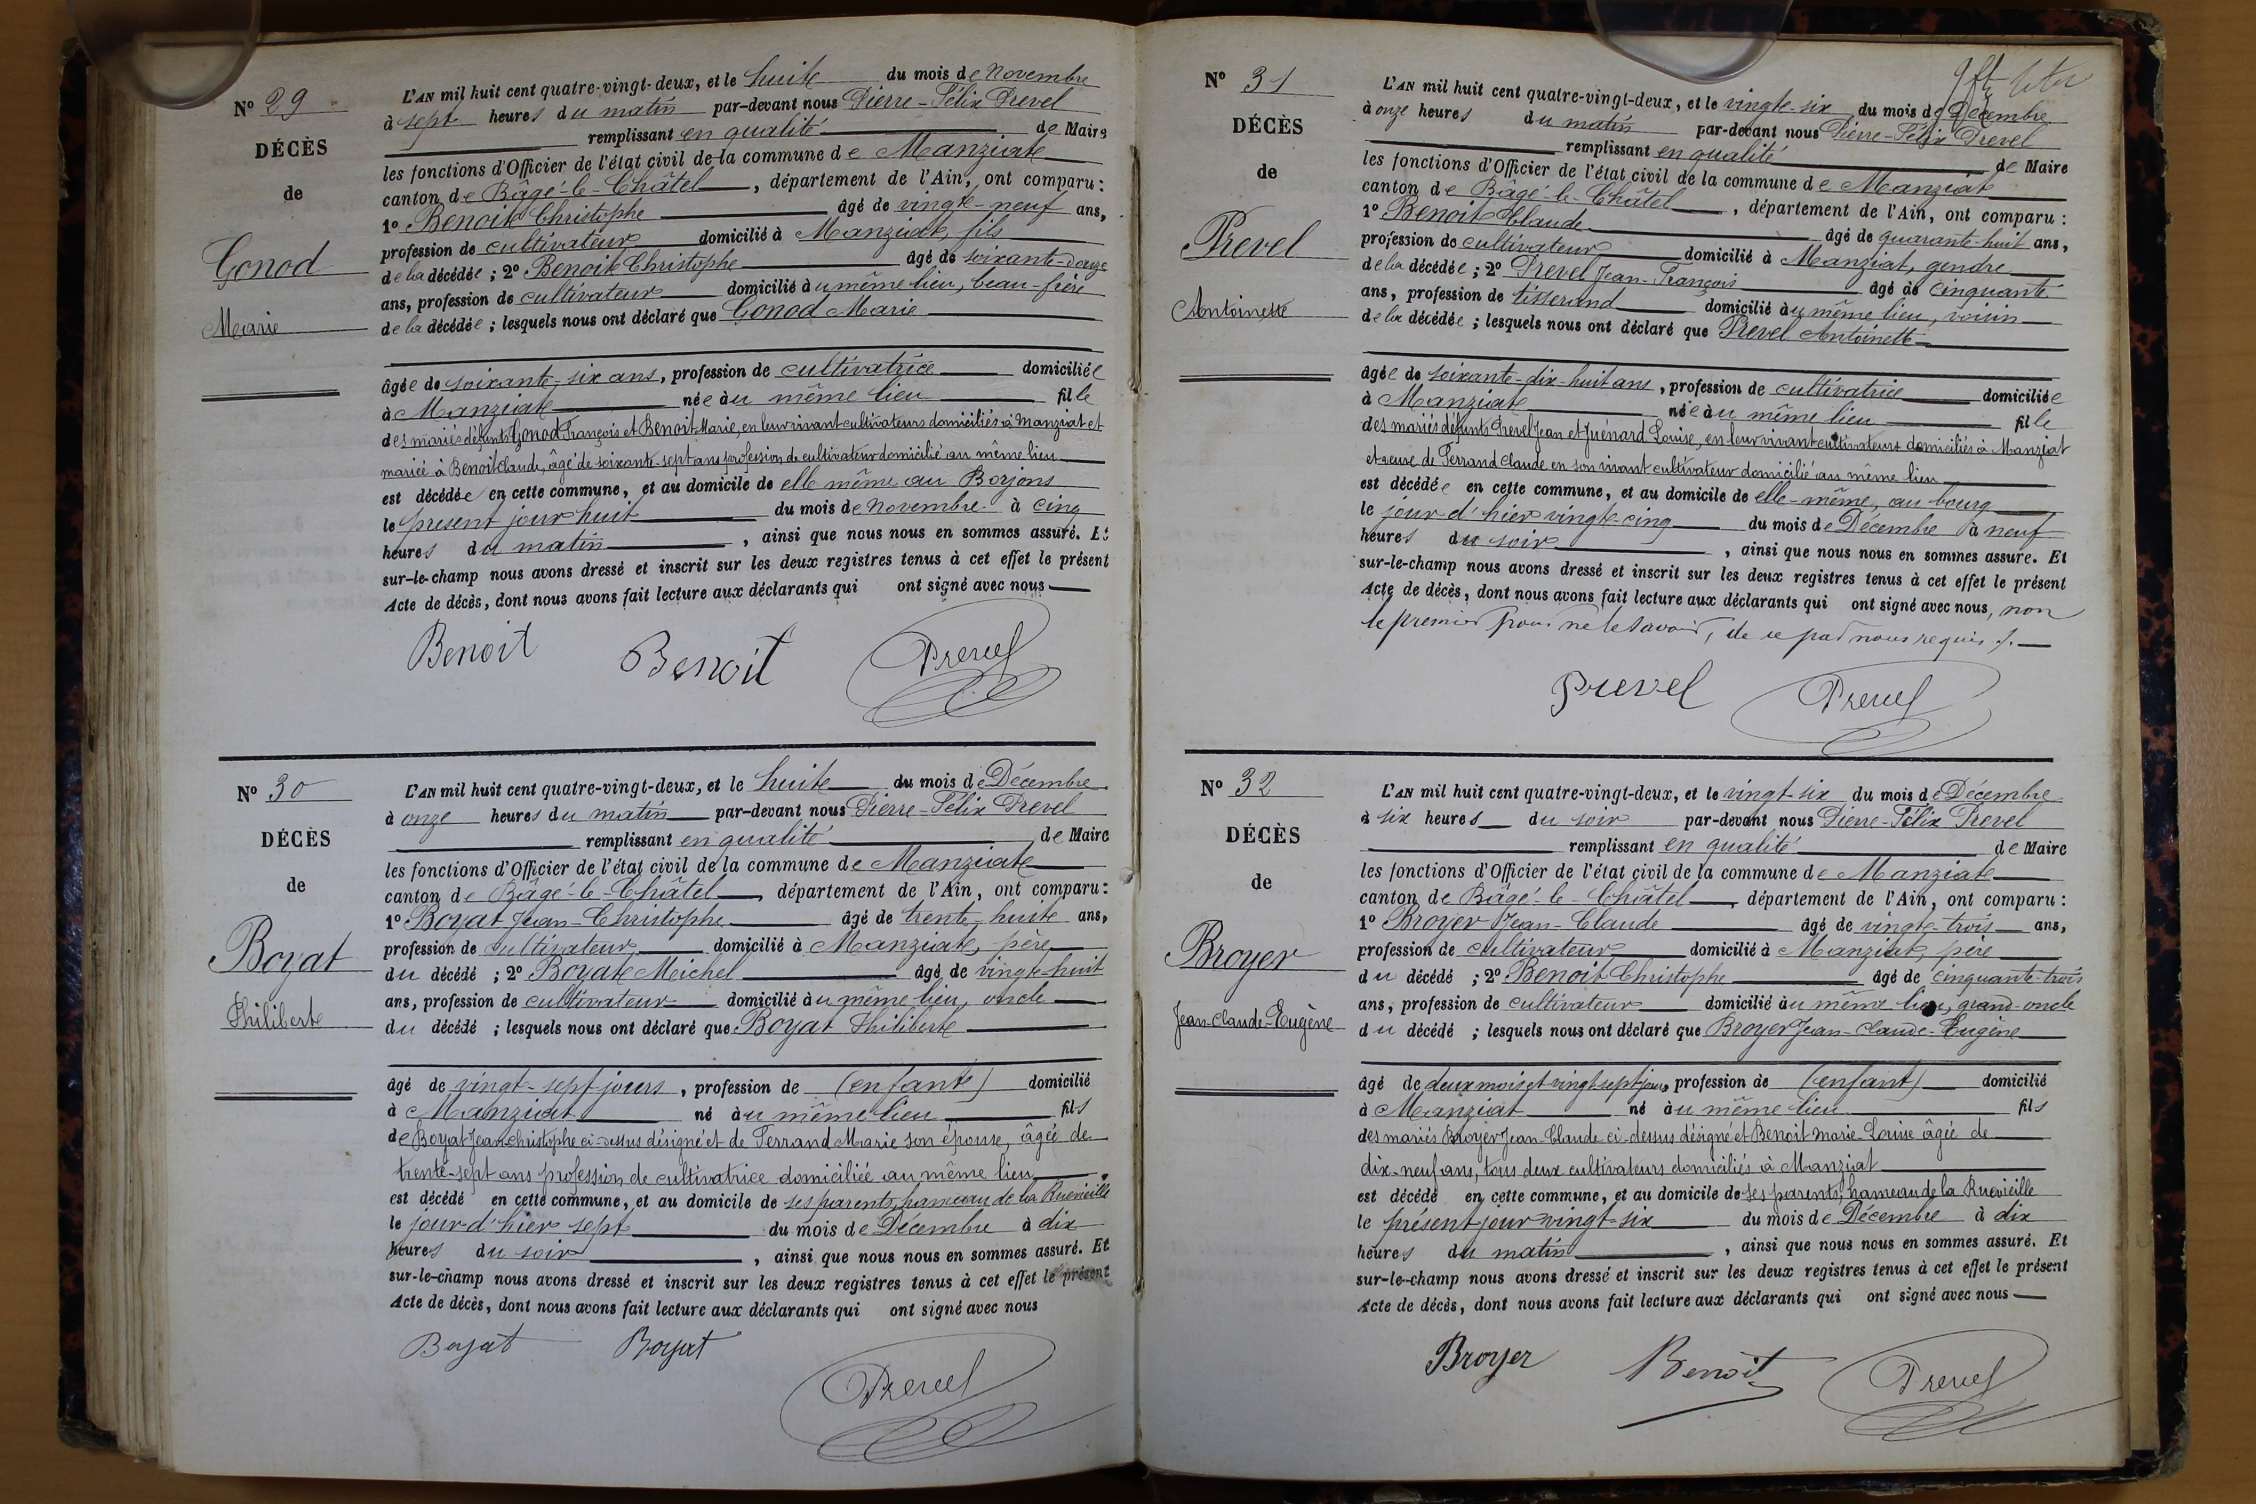 N° 29
DÉCÈS
de
Gonod
Marie
L'AN mil huit cent quatre-vingt-deux, et le huit du mois de Novembre
à sept heures du matin par-devant nous Pierre-Félix Prevel
remplissant en qualité de Maire
les fonctions d'Officier de l'état civil de la commune de Manziat
canton de Bâgé-le-Châtel, département de l'Ain, ont comparu :
1° Benoit Christophe âgé de vingt-neuf ans,
profession de cultivateur domicilié à Manziat, fils
de la décédée ; 2° Benoit Christophe âgé de soixante-douze
ans, profession de cultivateur domicilié au même lieu, beau-frère
de la décédée ; lesquels nous ont déclaré que Gonod Marie
âgée de soixante-six ans, profession de cultivatrice domiciliée
à Manziat née au même lieu fille
des mariés défunts Gonod François et Benoit Marie, en leur vivant cultivateurs domiciliés à Manziat et
mariée à Benoit Claude, âgé de soixante-sept ans profession de cultivateur domicilié au même lieu
est décédée en cette commune, et au domicile de elle même au Borjons
le présent jour huit du mois de Novembre à cinq
heures du matin, ainsi que nous nous en sommes assuré. Et
sur-le-champ nous avons dressé et inscrit sur les deux registres tenus à cet effet le présent
Acte de décès, dont nous avons fait lecture aux déclarants qui ont signé avec nous
Benoit Benoit Prevel
N° 30
DÉCÈS
de
Boyat
Philibert
L'AN mil huit cent quatre-vingt-deux, et le huit du mois de Décembre
à onze heures du matin par-devant nous Pierre-Félix Prevel
remplissant en qualité de Maire
les fonctions d'Officier de l'état civil de la commune de Manziat
canton de Bâgé-le-Châtel, département de l'Ain, ont comparu :
1° Boyat Jean-Christophe âgé de trente-huit ans,
profession de cultivateur domicilié à Manziat, père
du décédé ; 2° Boyat Michel âgé de vingt-huit
ans, profession de cultivateur domicilié au même lieu, oncle
du décédé ; lesquels nous ont déclaré que Boyat Philibert
âgé de vingt-sept jours, profession de (enfant) domicilié
à Manziat né au même lieu fils
de Boyat Jean-Christophe ci-dessus désigné et de Ferrand Marie son épouse, âgée de
trente-sept ans profession de cultivatrice domiciliée au même lieu
est décédé en cette commune, et au domicile de ses parents, hameau de la Ruevieille
le jour d'hier sept du mois de Décembre à dix
heures du soir, ainsi que nous nous en sommes assuré. Et
sur-le-champ nous avons dressé et inscrit sur les deux registres tenus à cet effet le présent
Acte de décès, dont nous avons fait lecture aux déclarants qui ont signé avec nous
Boyat Boyat
Prevel
N° 31
DÉCÈS
de
Prevel
Antoinette
L'AN mil huit cent quatre-vingt-deux, et le vingt-six du mois de Décembre
à onze heures du matin par-devant nous Pierre-Félix Prevel
remplissant en qualité de Maire
les fonctions d'Officier de l'état civil de la commune de Manziat
canton de Bâgé-le-Châtel, département de l'Ain, ont comparu :
1° Benoit Claude âgé de quarante-huit ans,
profession de cultivateur domicilié à Manziat, gendre
de la décédée ; 2° Prevel Jean-François âgé de cinquante
ans, profession de tisserand domicilié au même lieu, voisin
de la décédée ; lesquels nous ont déclaré que Prevel Antoinette
âgée de soixante-dix-huit ans, profession de cultivatrice domiciliée
à Manziat née au même lieu fille
des mariés défunts Prevel Jean et Juénard Louise, en leur vivant cultivateurs domiciliés à Manziat
et veuve de Ferrand Claude en son vivant cultivateur domicilié au même lieu
est décédée en cette commune, et au domicile de elle-même, au bourg
le jour d'hier vingt-cinq du mois de Décembre à neuf
heures du soir, ainsi que nous nous en sommes assuré. Et
sur-le-champ nous avons dressé et inscrit sur les deux registres tenus à cet effet le présent
Acte de décès, dont nous avons fait lecture aux déclarants qui ont signé avec nous, non
le premier pour ne le savoir, de ce par nous requis ./.
Prevel Prevel
N° 32
DÉCÈS
de
Broyer
Jean-Claude-Eugène
L'AN mil huit cent quatre-vingt-deux, et le vingt-six du mois de Décembre
à six heures du soir par-devant nous Pierre-Félix Prevel
remplissant en qualité de Maire
les fonctions d'Officier de l'état civil de la commune de Manziat
canton de Bâgé-le-Châtel, département de l'Ain, ont comparu :
1° Broyer Jean-Claude âgé de vingt-trois ans,
profession de cultivateur domicilié à Manziat, père
du décédé ; 2° Benoit Christophe âgé de cinquante-trois
ans, profession de cultivateur domicilié au même lieu, grand-oncle
du décédé ; lesquels nous ont déclaré que Broyer Jean-Claude-Eugène
âgé de deux mois et vingt sept jours, profession de (enfant) domicilié
à Manziat né au même lieu fils
des mariés Broyer Jean-Claude ci-dessus désigné et Benoit Marie-Louise âgée de
dix-neuf ans, tous deux cultivateurs domiciliés à Manziat
est décédé en cette commune, et au domicile de ses parents, hameau de la Ruevieille
le présent jour vingt-six du mois de Décembre à dix
heures du matin, ainsi que nous nous en sommes assuré. Et
sur-le-champ nous avons dressé et inscrit sur les deux registres tenus à cet effet le présent
Acte de décès, dont nous avons fait lecture aux déclarants qui ont signé avec nous
Broyer Benoit Prevel